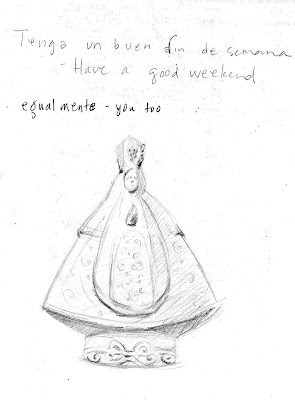 Tenga un buen fin de semana
- Have a good weekend
egualmente - you too